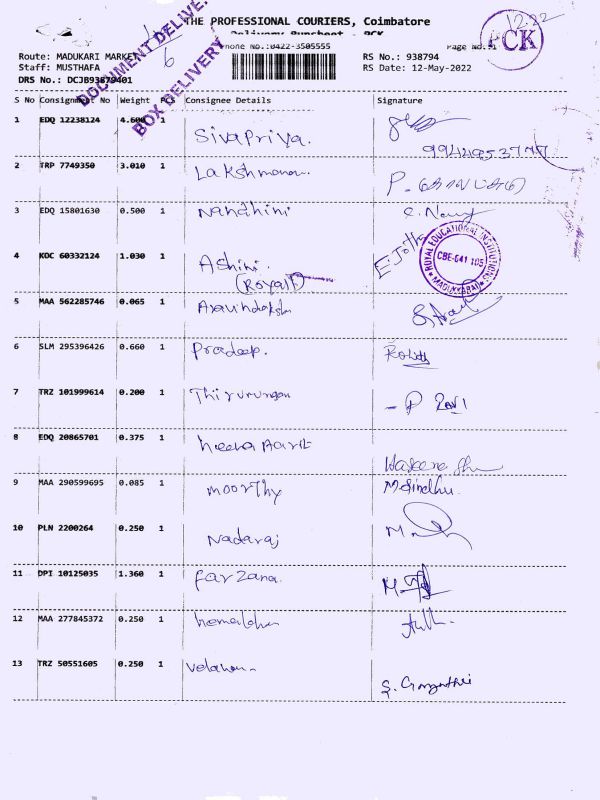 THE PROFESSIONAL COURIERS, Coimbatore
Delivery Runsheet - PCK
Phone No.:0422-3505555
Page No.:1
12.22
PCK
DOCUMENT DELIVERY
BOX DELIVERY
6
Route: MADUKARI MARKET
Staff: MUSTHAFA
DRS No.: DCJB93879401
RS No.: 938794
RS Date: 12-May-2022
S No Consignment No Weight PCS Consignee Details Signature
1 EDQ 12238124 4.600 1 SivaPriya.
2 TRP 7749350 3.010 1 Lakshmanan. P.
3 EDQ 15801630 0.500 1 Nandhini
4 KOC 60332124 1.030 1 Ashini. E. Jothi
(Royal)
ROYAL EDUCATIONAL INSTITUTIONS
CBE-641 105
MADUKKARAI
5 MAA 562285746 0.065 1
6 SLM 295396426 0.660 1 Pradeep. Rohith
7 TRZ 101999614 0.200 1 Thirumurugan - P Ravi
8 EDQ 20865701 0.375 1
9 MAA 290599695 0.085 1 Moorthy M. Sindhu.
10 PLN 2200264 0.250 1 Nadaraj
11 DPI 10125035 1.360 1 farzana.
12 MAA 277845372 0.250 1
13 TRZ 50551605 0.250 1